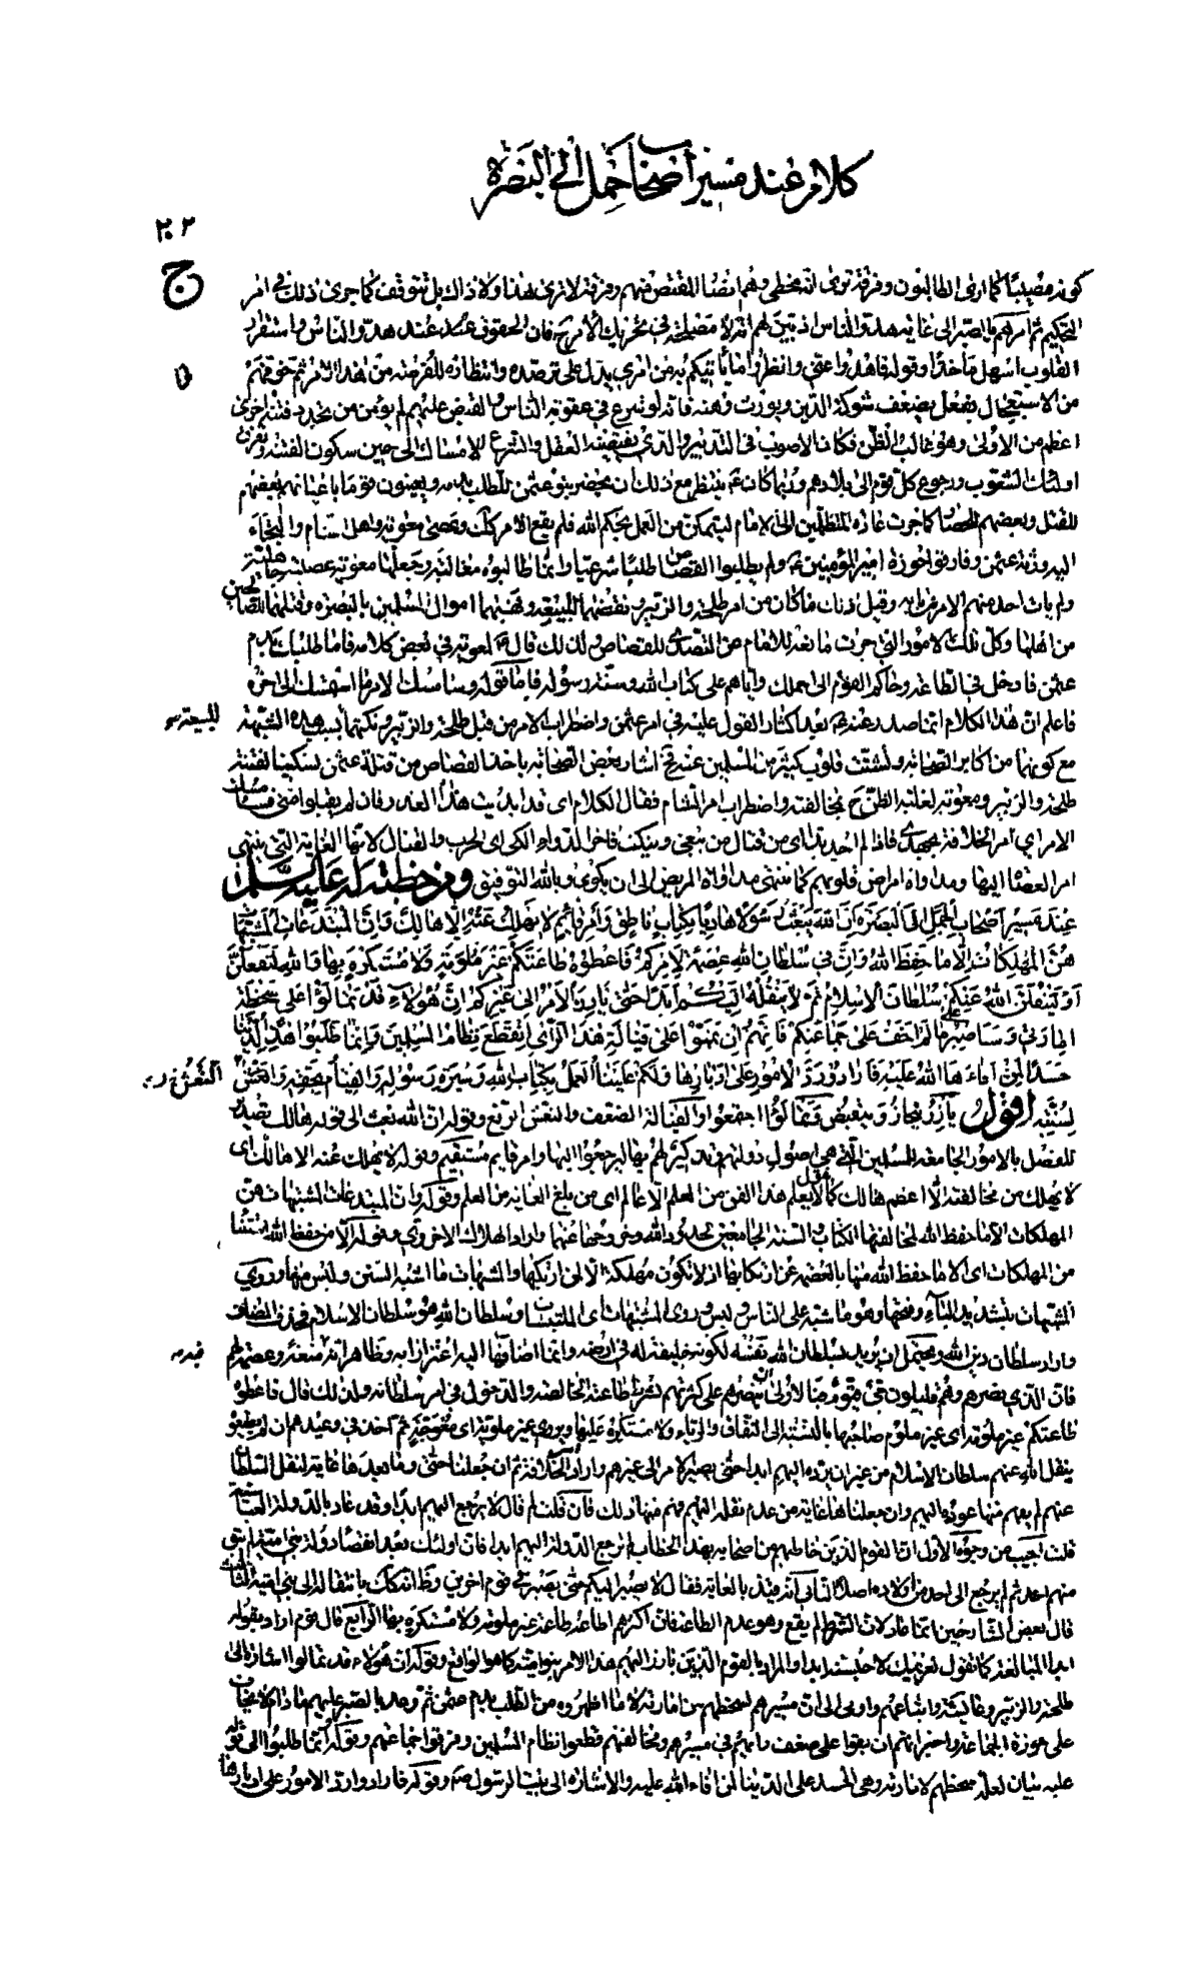 كلامه عند مسير أصحاب الجمل الى البصرة
٢٠٢
ج
كونه مصيبًا كما راى الطالبون وفرقة ترى انه مخطى وهم انصار المقتص منهم وفرقة لا ترى هذا ولا ذاك بل تتوقف كما جرى ذلك فى امر
التحكيم ثم امرهم بالصبر الى غاية هدو الناس اذ تبين لهم انه لا مصلحة فى تحريك الامر ح فان الحقوق عند هدو الناس واستقرار
القلوب اسهل مأخذًا وقوله فاهدؤا عنى وانظروا ماذا ياتيكم به من امرى يدل على ترصده وانتظاره للفرصة من هذا الامر ثم خوفهم
من الاستعجال بفعل يضعف شوكة الدين ويورث وهنه فانه لو شرع فى عقوبة الناس والقبض عليهم لم يؤمن من تجدد فتنة اخرى
اعظم من الاولى وهو غالب الظن فكان الاصوب فى التدبير والذى يقتضيه العقل والشرع الامساك الى حين سكون الفتنة وتفرق
اولئك الشعوب ورجوع كل قوم الى بلادهم وربما كان ع ينتظر مع ذلك ان يحضر بنو عثمن للطلب بدمه ويعينون قومًا باعيانهم بعضهم
للقتل وبعضهم للحصار كما جرت عادة المتظلمين الى الامام ليتمكن من العمل بحكم الله فلم يقع الامر كذلك وعصى معوية واهل الشام والتجأ
اليه ورثة عثمن وفارقوا حوزة امير المؤمنين ع ولم يطلبوا القصاص طلبًا شرعيا وانما طالبوه مغالبة وجعلها معوية عصبية جاهلية
ولم يات احد منهم الامر من بابه وقبل ذلك ما كان من امر طلحة والزبير ونقضهما البيعة ونهبهما اموال المسلمين بالبصرة وقتلهما الصالحين
من اهلها وكل ذلك الامور التى جرت مانعة للامام عن التصدى للقصاص ولذلك قال ع لمعوية فى بعض كلامه فاما طلبك بدم
عثمن فادخل فى الطاعة وحاكم القوم الى احملك واياهم على كتاب الله وسنة رسوله فاما قوله وسامسك الامر ما استمسك الى اخره
فاعلم ان هذا الكلام انما صدر عنه ع بعد اكثار القول عليه فى امر عثمن واضطراب الامر من قبل طلحة والزبير ونكثهما بسبب هذه الشبهة
للبيعة
مع كونهما من اكابر الصحابة وتشتت قلوب كثير من المسلمين عنه ح اشار بعض الصحابة باخذ القصاص من قتلة عثمن تسكينا لفتنة
طلحة والزبير ومعوية لغلبة الظن ح بمخالفته واضطراب امر الشام فقال الكلام اى قد ابديت هذا العذر فان لم يقبلوا منى فسامسك
الامر اى امر الخلافة بجهدى فاذا لم اجد بدا اى من قتال من يبغى وينكث فاخر الدواء الكى اى الحرب والقتال لانها الغاية التى ينتهى
امر العصاة اليها ومداواة امراض قلوبهم كما ينتهى مداواة المريض الى ان يكوى وبالله التوفيق ومن خطبة له عليه السلام
عند مسير اصحاب الجمل الى البصرة ان الله بعث رسولا هاديا بكتاب ناطق وامر قائم لا يهلك عنه الا هالك وان المبتدعات المشتبهات
هن المهلكات الا ما حفظ الله وان فى سلطان الله عصمة لامركم فاعطوه طاعتكم غير ملومة ولا مستكره بها والله لتفعلن
او لينقلن الله عنكم سلطان الاسلام ثم لا ينقله اليكم ابدًا حتى يارز الامر الى غيركم ان هؤلاء قد تمالؤا على سخطة
امارتى وساصبر ما لم اخف على جماعتكم فانهم ان تمموا على فيالة هذا الراى انقطع نظام المسلمين وانما طلبوا هذه الدنيا
حسدا لمن افاءها الله عليه فارادوا رد الامور على ادبارها ولكم علينا العمل بكتاب الله وسيرة رسوله والقيام بحقه والنعش
النعش خ
لسنته اقول يارز ينحاز وينقبض وتمالؤا اجتمعوا والفيالة الضعف والنعش الرفع وقوله ان الله بعث الى قوله هالك تصدير
للفصل بالامور الجامعة للمسلمين التى هى اصول دولتهم فى تذكيره لهم بها ليرجعوا اليها وامر قايم مستقيم وقوله لا يهلك عنه الا هالك اى
لا يهلك من مخالفته الا اعظم هالك كما تقول لا يعلم هذا الفن من العلم الا عالم اى من بلغ الغاية من العلم وقوله وان المبتدعات المشبهات هن
المهلكات الا ما حفظ الله لمخالفتها الكتاب والسنة الجامعين لحدود الله وخروجها عنهما واراد الهلاك الاخروى وقوله الا من حفظ الله استثناء
من المهلكات اى الا ما حفظ الله منها بالعصمة عن ارتكابها اذ لا تكون مهلكة الا لمن ارتكبها والمشبهات ما اشبه السنن وليس منها وروى
المشبهات بتشديد الباء وفتحها وهو ما شبه على الناس ولبس وروى المشتبهات اى الملتبسات وسلطان الله هو سلطان الاسلام فحذف المضاف
واراد سلطان دين الله ويحتمل ان يريد بسلطان الله نفسه لكونه خليفة له فى ارضه وانما اضافها اليه اعتزازا به وظاهر ان منعة وعصمة لهم
فيه
فان الذى نصرهم وهم قليلون حى قيوم فبالاولى ان ينصرهم على كثرتهم بشرط طاعته الخالصة والدخول فى امر سلطانه ولذلك قال فاعطوه
طاعتكم غير ملومة اى غير ملوم صاحبها بالنسبة الى النفاق والرياء ولا مستكره عليها ويروى غير ملوية اى معوجة ثم اخذ فى وعيدهم ان لم يطيعوا
بنقل الله عنهم سلطان الاسلام من غير ان يرده اليهم ابدا حتى يصير الامر الى غيرهم واراد امر الخلافة ثم ان جعلنا حتى وما بعدها غاية لنقل السلطان
عنهم لم يفهم منها عوده اليهم وان جعلناها غاية من عدم نقله اليهم فهم منها ذلك فان قلت لم قال لا يرجع اليهم ابدا وقد عاد بالدولة العباسية
قلت اجيب من وجوه الاول ان القوم الذين خاطبهم من اصحابه بهذا الخطاب لم ترجع الدولة اليهم ابدا فان اولئك بعد انقضاء دولة بنى امية لم يبق
منهم احد ثم لم يرجع الى احد من اولاده اصلا الثانى انه قيد بالغاية فقال لا يصير اليكم حتى يصير فى قوم اخرين وظ انه كذلك بانتقاله الى بنى امية الثالث
قال بعض الشارحين انما عاد لان الشرط لم يقع وهو عدم الطاعة فان اكثرهم اطاعه طاعة غير ملومة ولا مستكره بها الرابع قال قوم اراد بقوله
ابدا المبالغة كما تقول لغريمك لاحبسنك ابدا والمراد بالقوم الذين يارز اليهم هذا الامر بنو امية كما هو الواقع وقوله ان هؤلاء قد تمالوا اشارة الى
طلحة والزبير وعايشة واتباعهم واومى الى ان مسيرهم لسخطهم من امارته لا ما اظهروه من الطلب بدم عثمن ثم وعد بالصبر عليهم ما دام لا يخاف
على حوزة الجماعة واخبر انهم ان بقوا على ضعف رايهم فى مسيرهم ومخالفتهم قطعوا نظام المسلمين وفرقوا جماعتهم وقوله انما طلبوا الى قوله
عليه بيان لعلة سخطهم لامارته وهى الحسد على الدنيا لمن افاء الله عليه والاشارة الى بيت الرسول ص وقوله فارادوا رد الامور على ادبارها